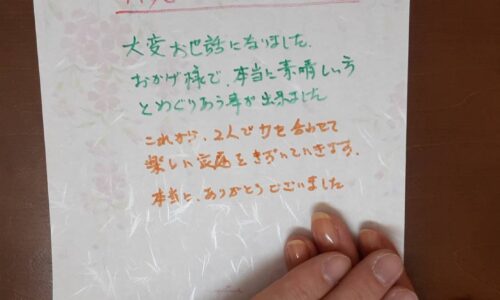 大変お世話になりました、
おかげ様で、本当に素晴しい方
とめぐりあう事が出来ました
これから、2人で力を合わせて
楽しい家庭をきずいていきます。
本当に、ありがとうございました